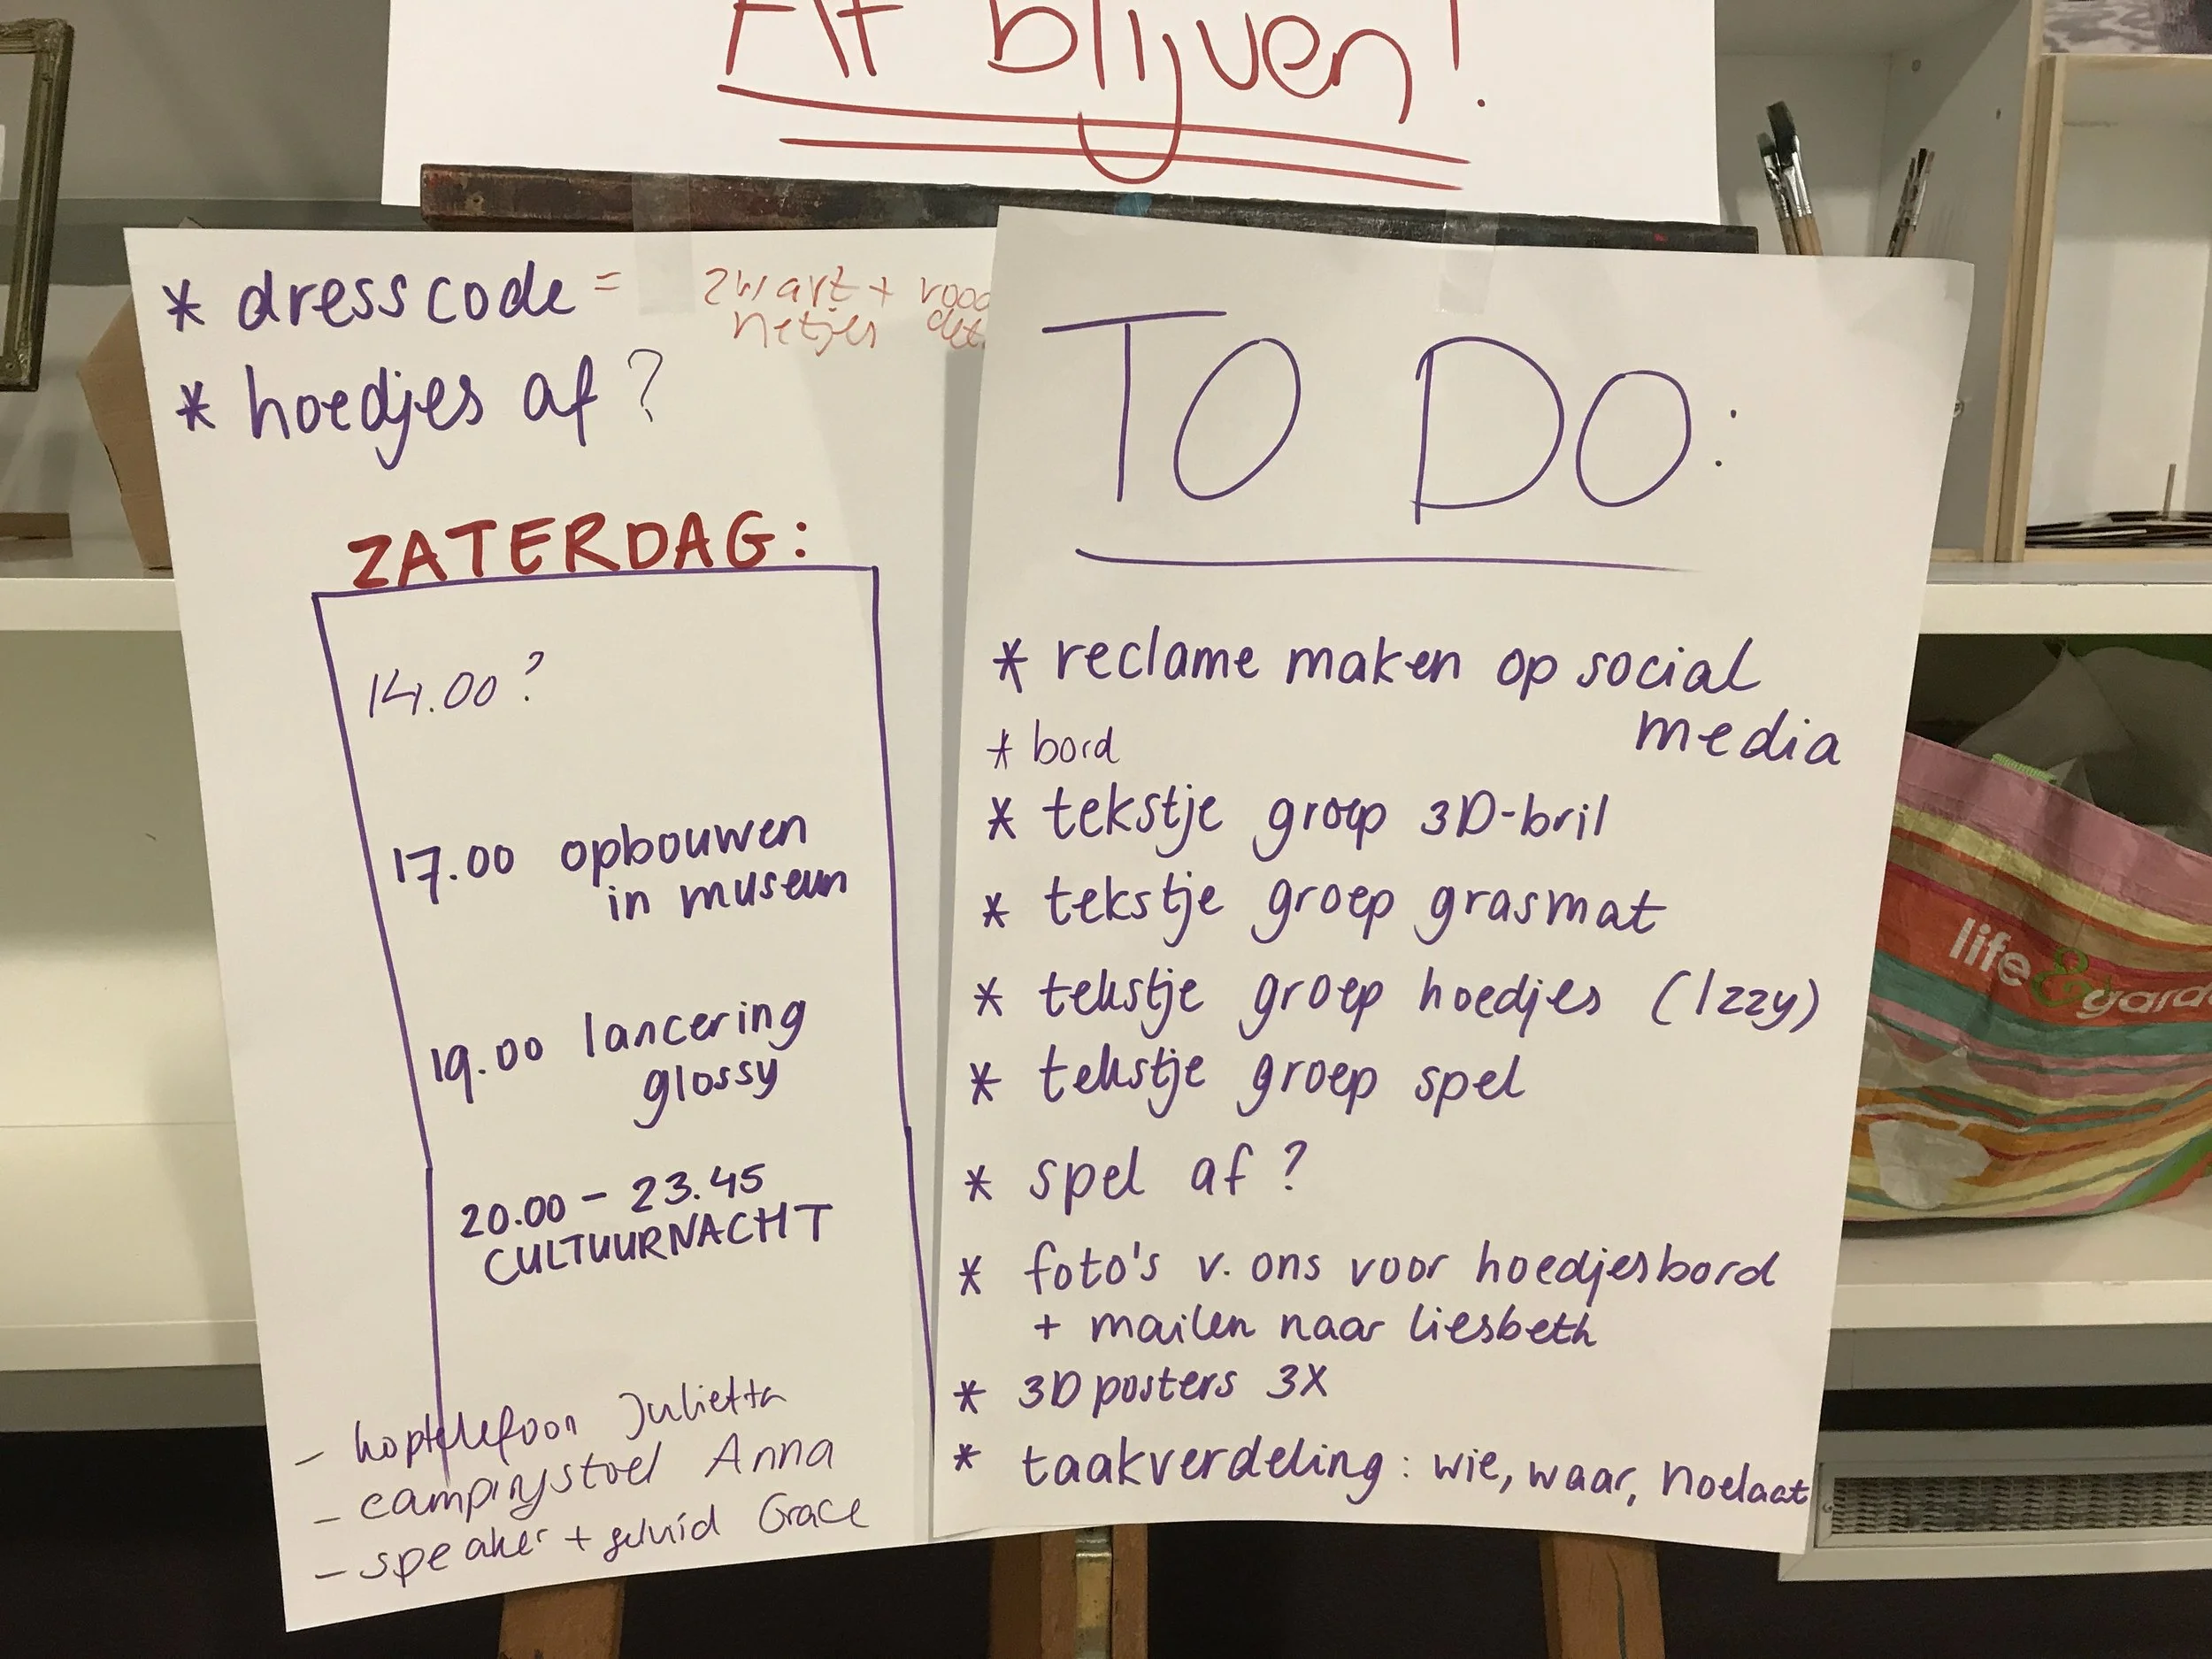 Af blijven!
* dresscode = zwart + rood
netjes det.
* hoedjes af?
ZATERDAG:
14.00?
17.00 opbouwen
in museum
19.00 lancering
glossy
20.00 - 23.45
CULTUURNACHT
- koptelefoon Julietta
- campingstoel Anna
- speaker + geluid Grace
TO DO:
* reclame maken op social
media
* bord
* tekstje groep 3D-bril
* tekstje groep grasmat
* tekstje groep hoedjes (Izzy)
* tekstje groep spel
* spel af?
* foto's v. ons voor hoedjesbord
+ mailen naar liesbeth
* 3D posters 3X
* taakverdeling: wie, waar, hoelaat
life & gard